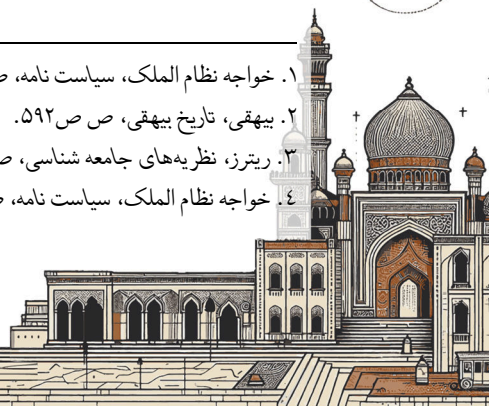 ۱. خواجه نظام الملک، سیاست نامه،
۲. بیهقی، تاریخ بیهقی، ص ص۵۹۲.
۳. ریترز، نظریه‌های جامعه شناسی،
۴. خواجه نظام الملک، سیاست نامه،